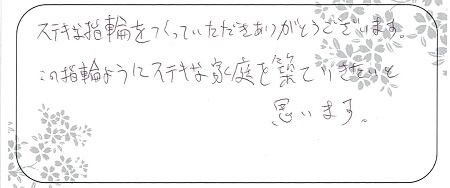 ステキな指輪をつくっていただきありがとうございます。
この指輪ようにステキな家庭を築て行きたいと
思います。